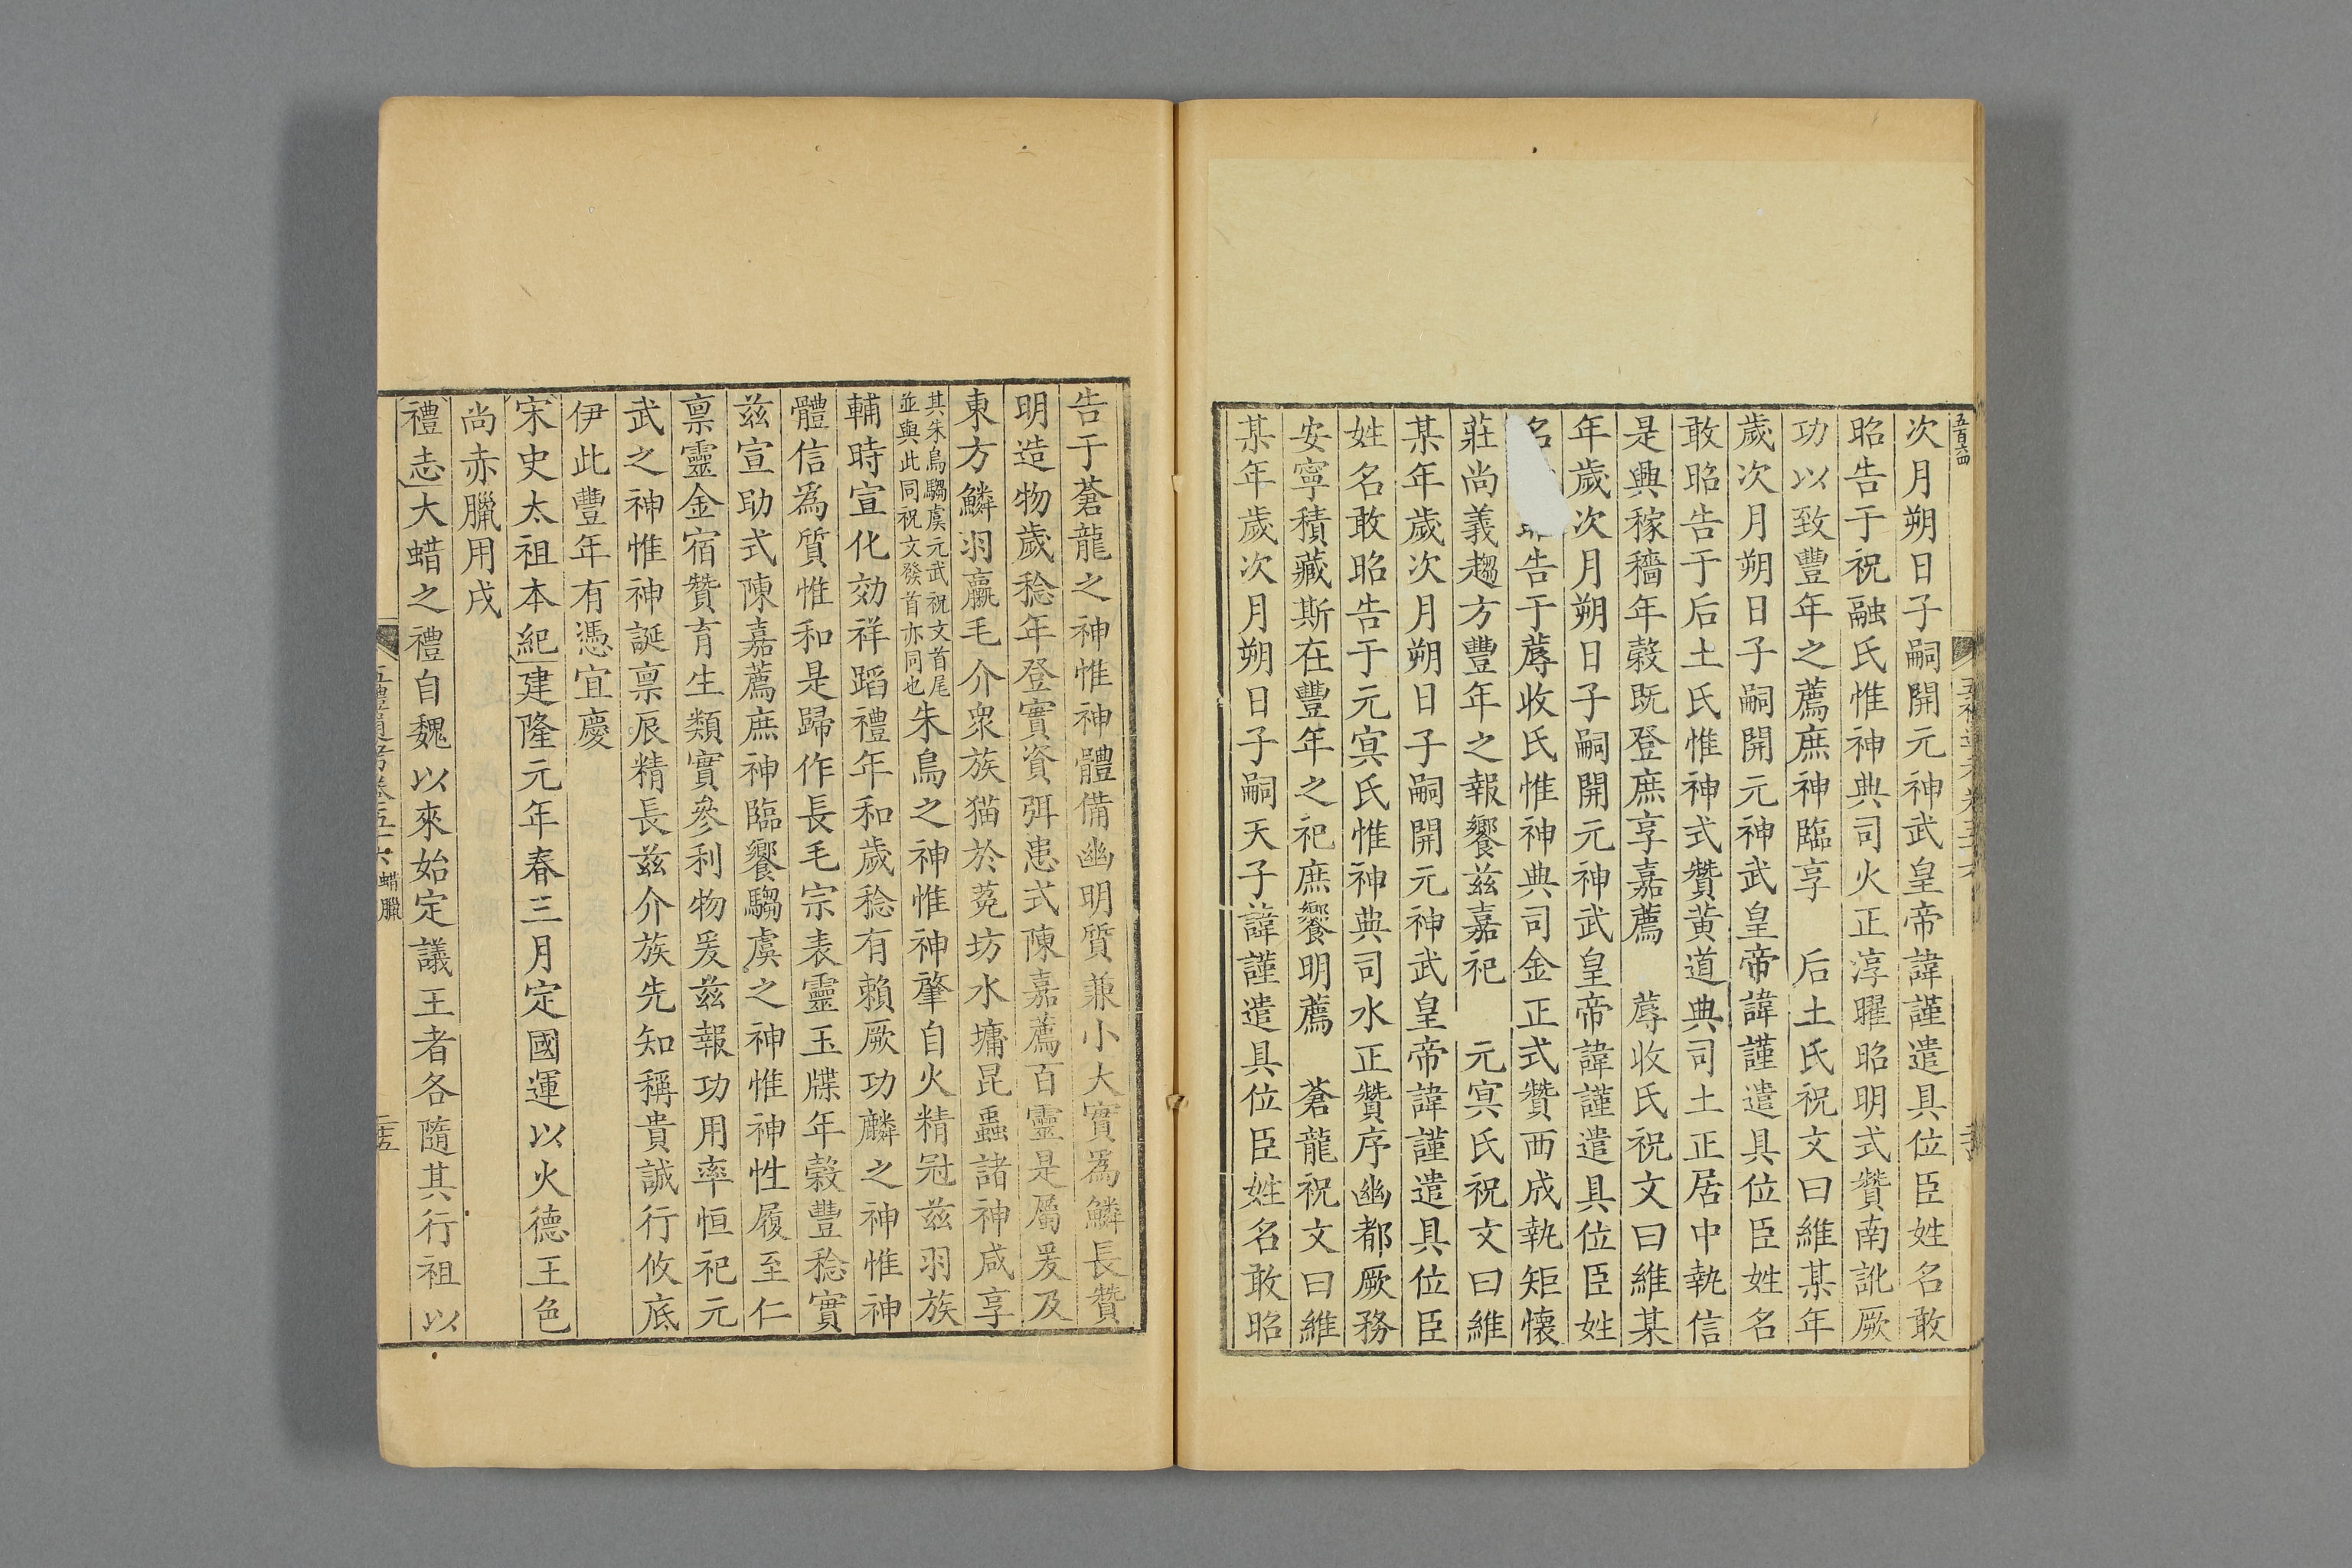 五百六四
次月朔日子嗣開元神武皇帝諱謹遣具位臣姓名敢
昭告于祝融氏惟神典司火正淳曜昭明式贊南訛厥
功以致豐年之薦庶神臨享　后土氏祝文曰維某年
歲次月朔日子嗣開元神武皇帝諱謹遣具位臣姓名
敢昭告于后土氏惟神式贊黃道典司土正居中執信
是興稼穡年穀既登庶享嘉薦　蓐收氏祝文曰維某
年歲次月朔日子嗣開元神武皇帝諱謹遣具位臣姓
名告于蓐收氏惟神典司金正式贊西成執矩懷
莊尚義趨方豐年之報饗兹嘉祀　元冥氏祝文曰維
某年歲次月朔日子嗣開元神武皇帝諱謹遣具位臣
姓名敢昭告于元冥氏惟神典司水正贊序幽都厥務
安寧積藏斯在豐年之祀庶饗明薦　蒼龍祝文曰維
某年歲次月朔日子嗣天子諱謹遣具位臣姓名敢昭
告于蒼龍之神惟神體備幽明質兼小大實爲鱗長贊
明造物歲稔年登實資弭患式陳嘉薦百靈是屬爰及
東方鱗羽臝毛介衆族猫於菟坊水墉昆蟲諸神咸享
其朱鳥騶虞元武祝文首尾
並與此同祝文發首亦同也
朱鳥之神惟神肇自火精冠兹羽族
輔時宣化効祥蹈禮年和歲稔有賴厥功麟之神惟神
體信爲質惟和是歸作長毛宗表靈玉牒年穀豐稔實
兹宣助式陳嘉薦庶神臨饗騶虞之神惟神性履至仁
禀靈金宿贊育生類實參利物爰兹報功用率恒祀元
武之神惟神誕禀辰精長兹介族先知稱貴誠行攸底
伊此豐年有憑宜慶
宋史太祖本紀建隆元年春三月定國運以火德王色
尚赤臘用戌
禮志大蜡之禮自魏以來始定議王者各隨其行祖以
五禮通考卷五十六 蜡臘